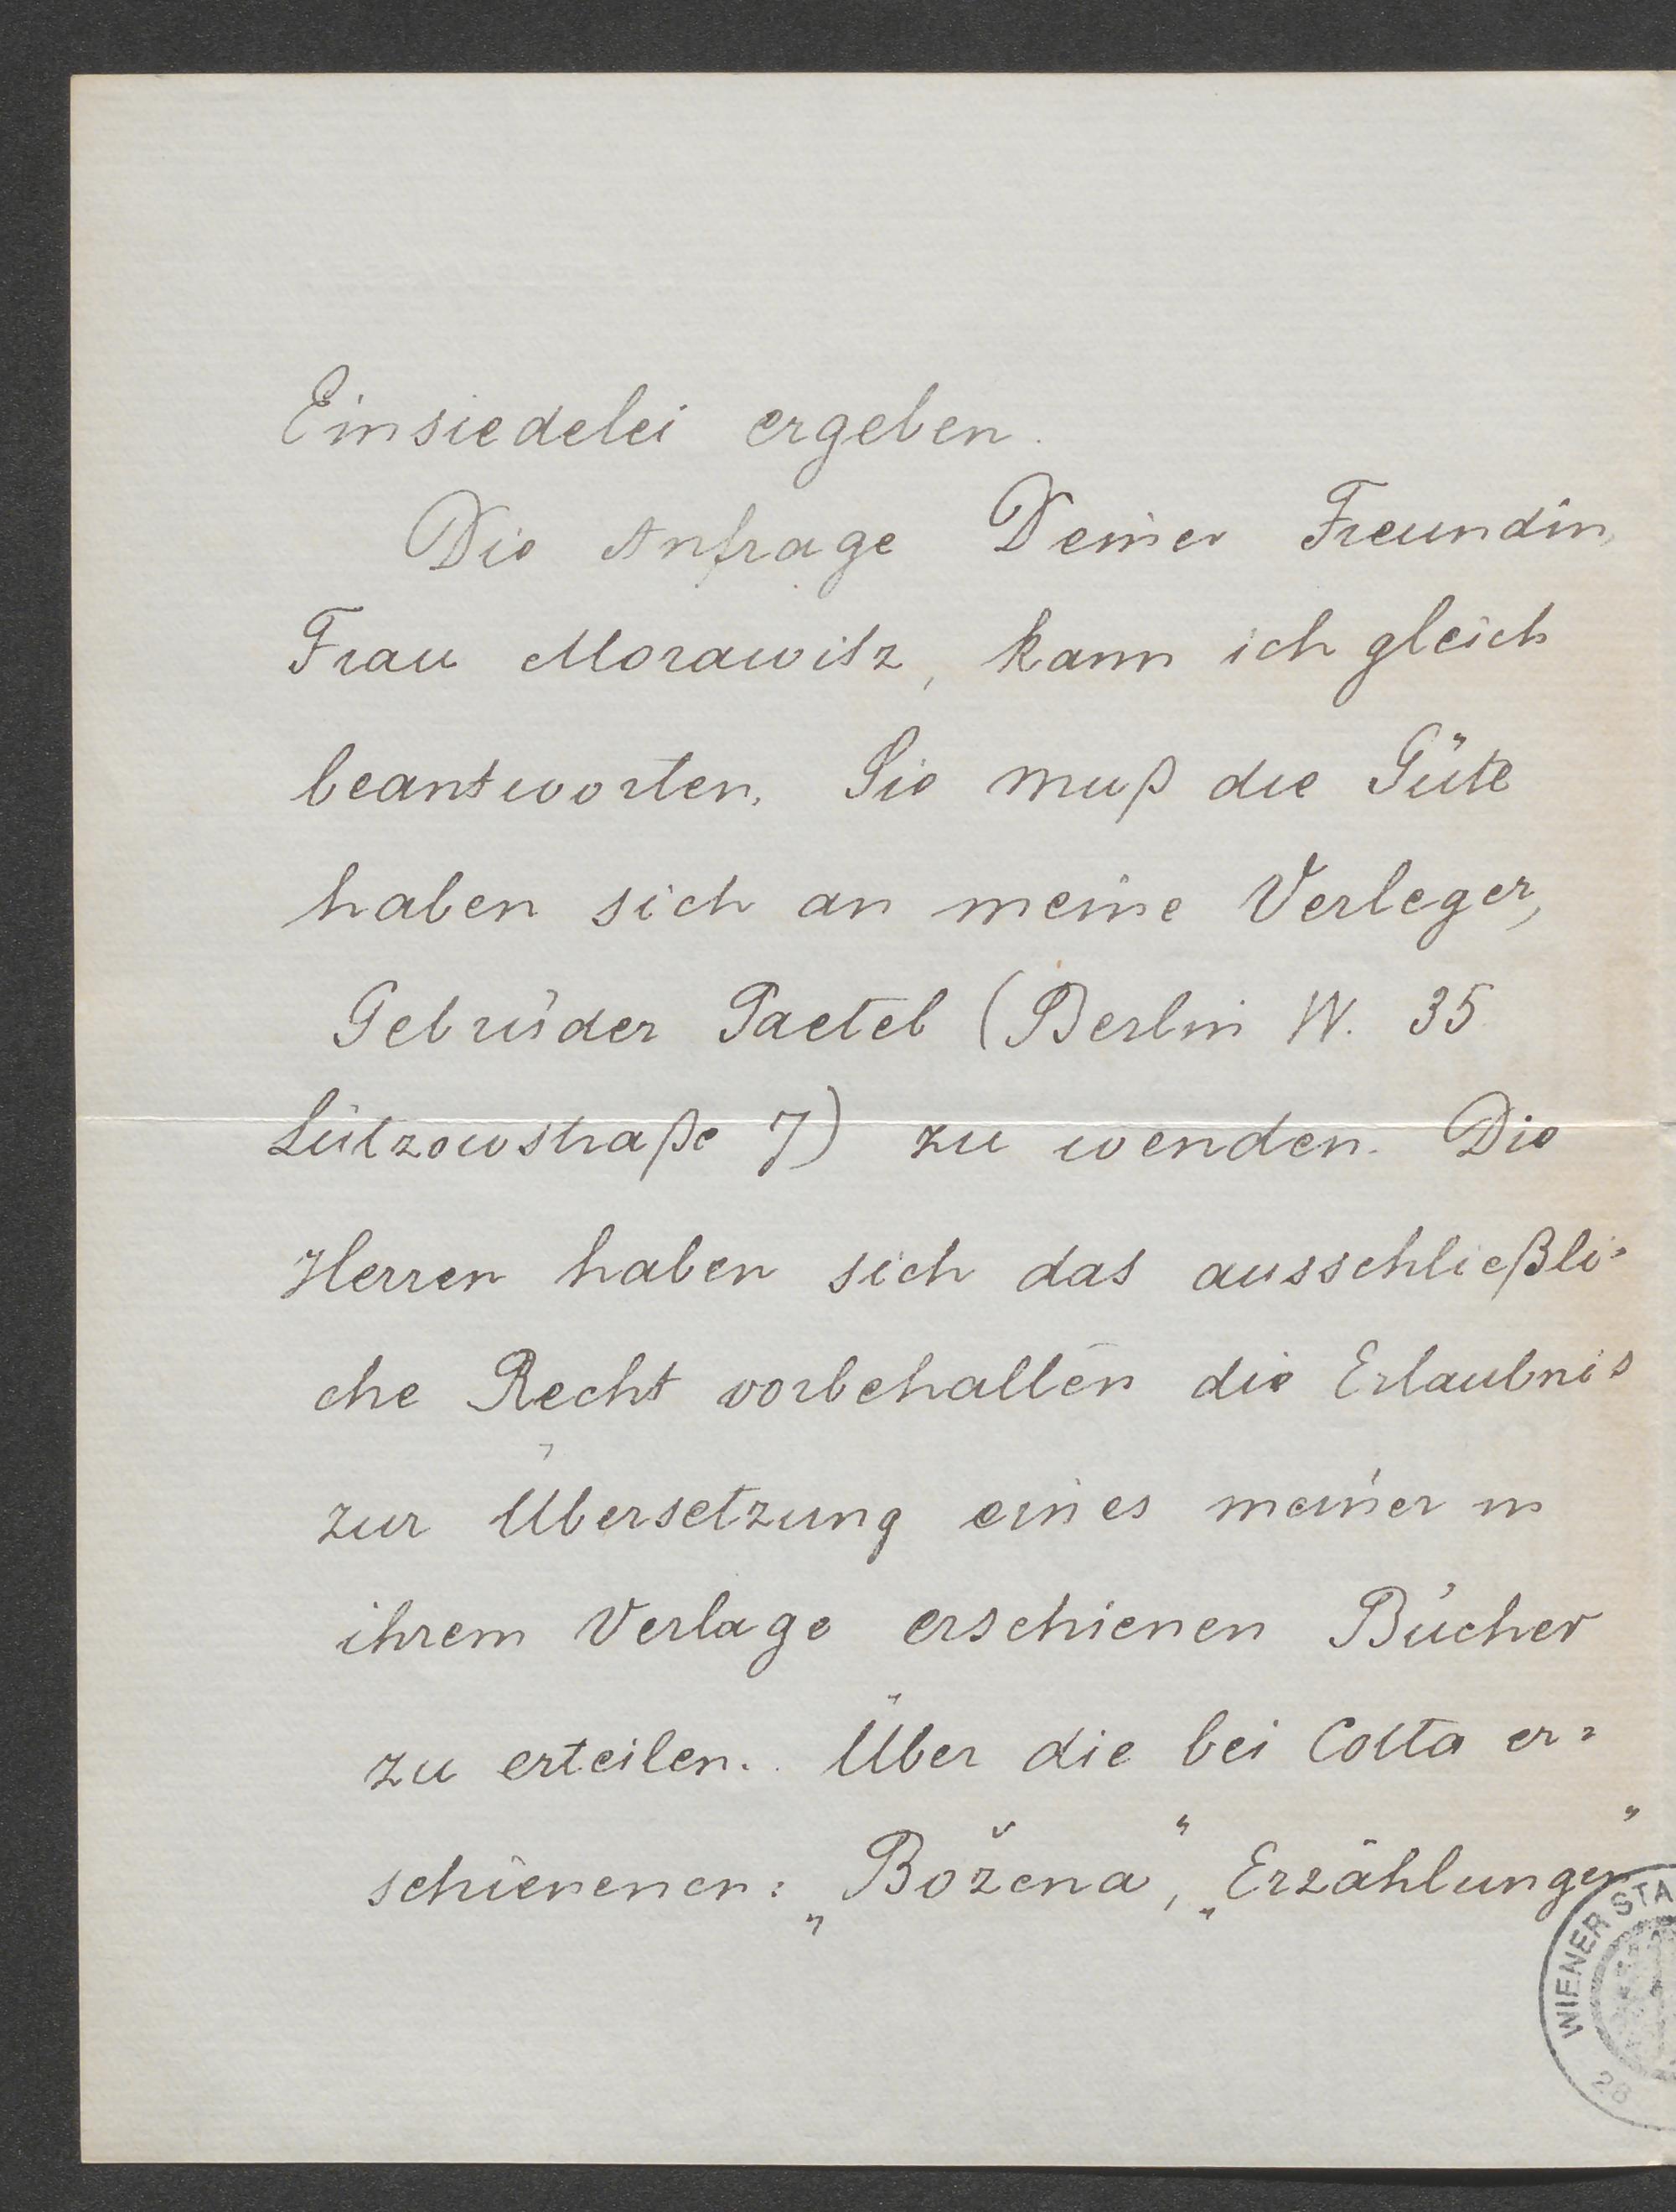 Einsiedelei ergeben.
Die Anfrage Deiner Freundin,
Frau Morawitz, kann ich gleich
beantworten. Sie muß die Güte
haben sich an meine Verleger,
Gebrüder Paetel (Berlin W. 35
Lützowstraße 7) zu wenden. Die
Herren haben sich das ausschließli=
che Recht vorbehalten die Erlaubnis
zur Übersetzung eines meiner in
ihrem Verlage erschienen Bücher
zu erteilen. Über die bei Cotta er=
schienenen: „Božena“, „Erzählungen“
WIENER STA
28